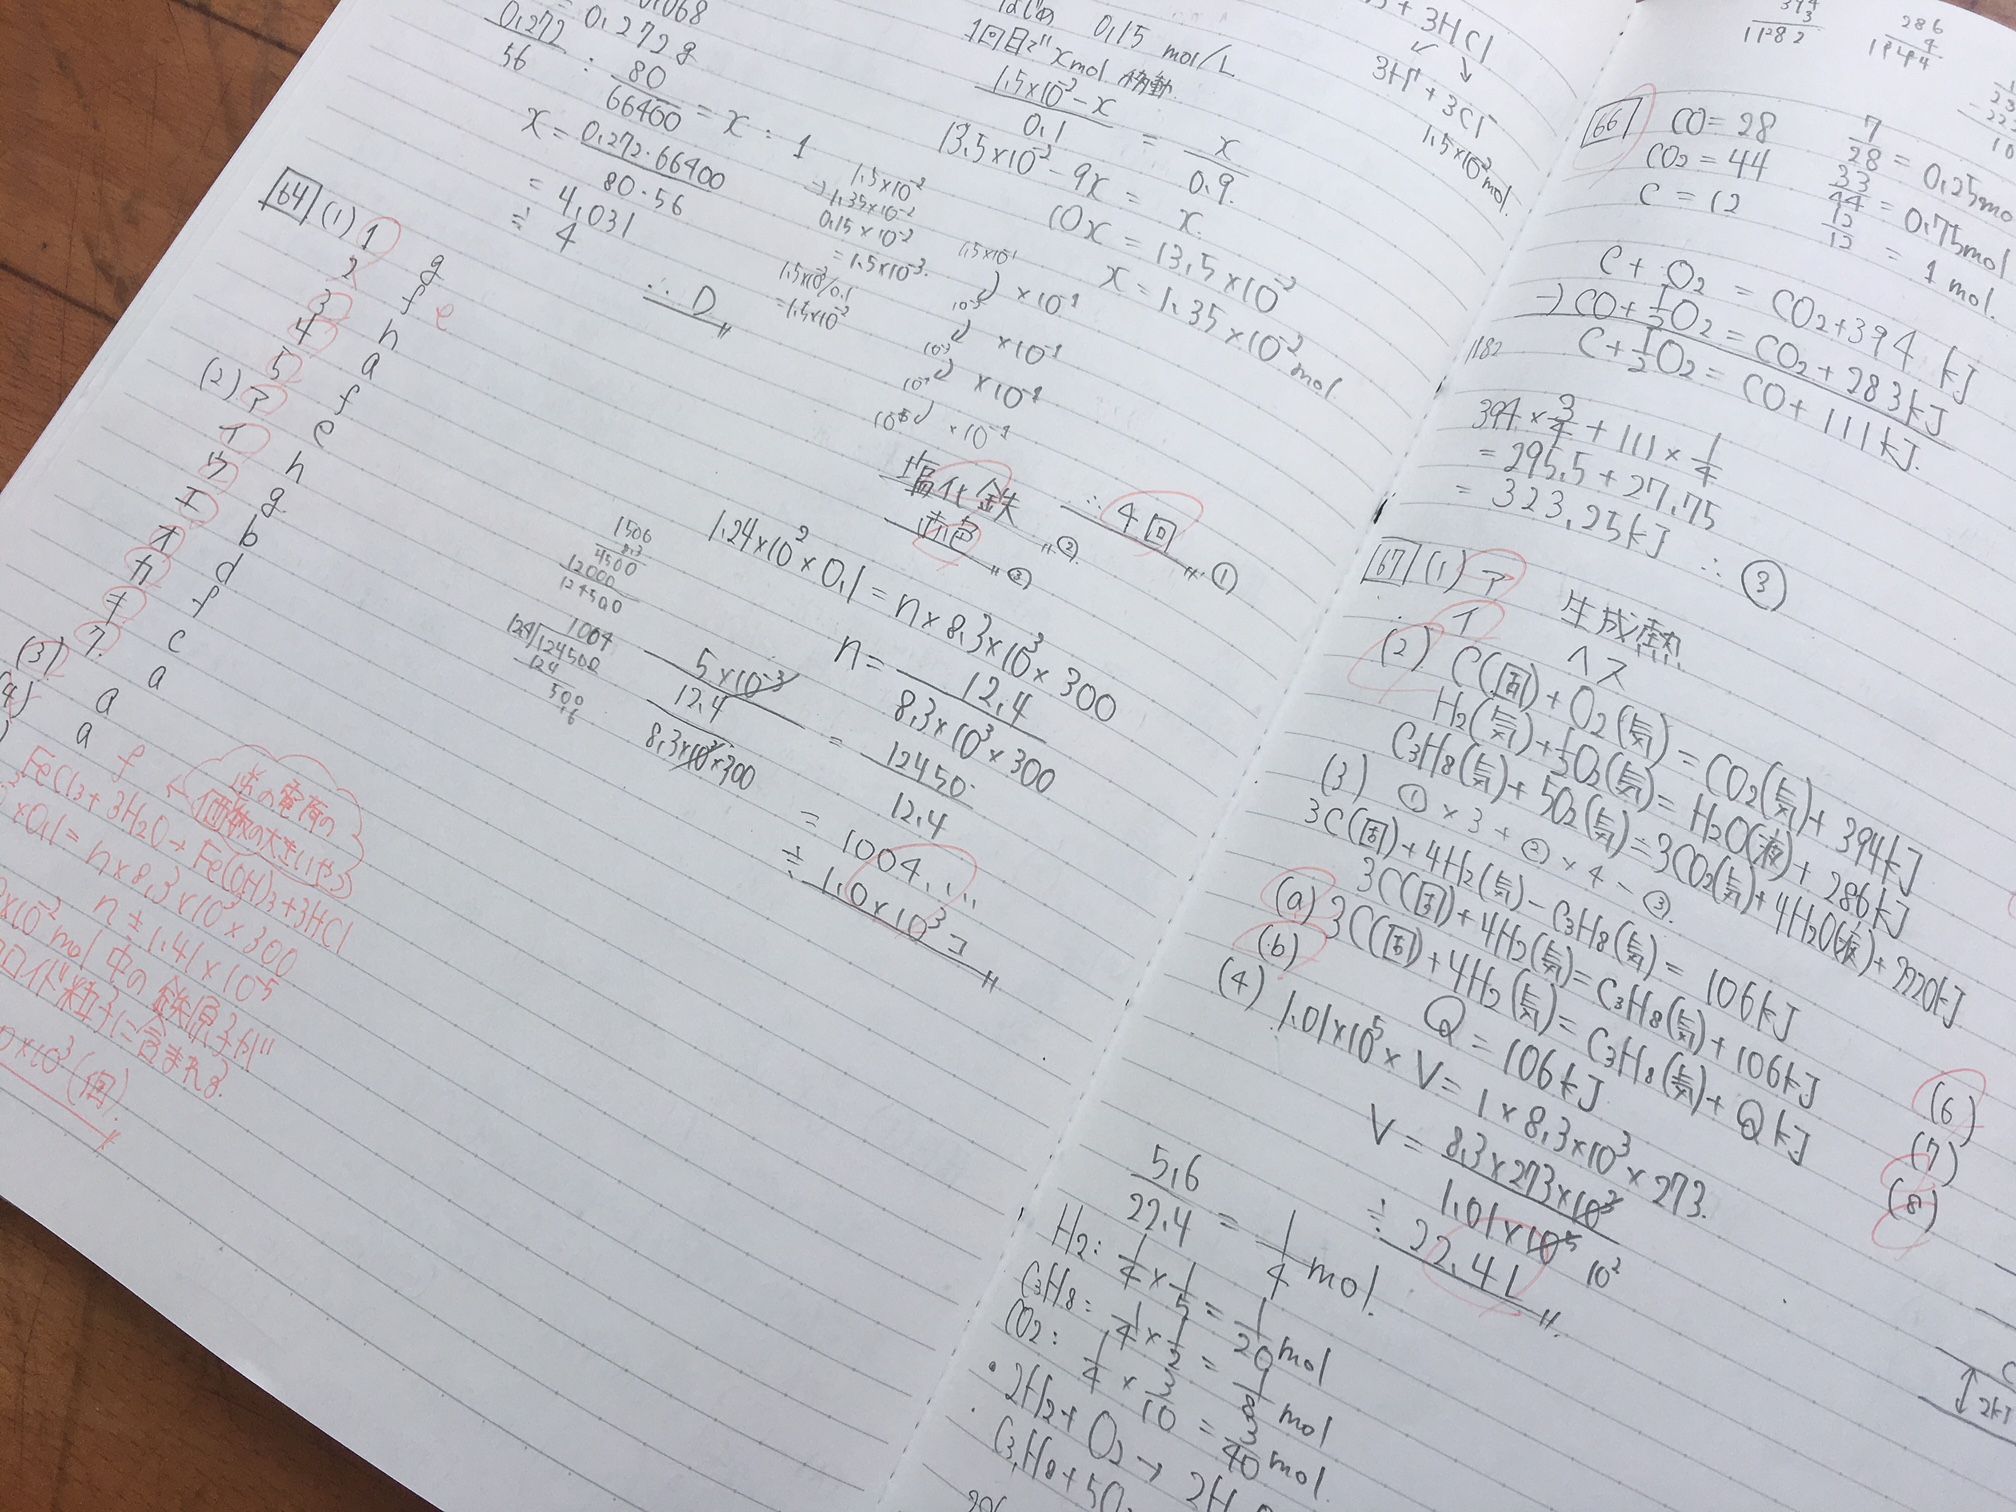 0,272 g
0,272/56 : 80/66400 = x : 1
x = 0,272・66400/80・56
= 4,031
≒ 4
∴ D
64 (1) 1 g
2 f e
3 h
4 a
5 f
(2) ア e
イ h
ウ g
エ b
オ d
カ f
キ c
ク a
(3) a
(4) a
f
逆の電荷の
価数の大きいやつ
FeCl3 + 3H2O → Fe(OH)3 + 3HCl
×0,1 = n × 8,3 × 10³ × 300
n = 1,41 × 10⁻⁵
×10⁻² mol 中の鉄原子が
コロイド粒子に含まれる.
×10³ (個).
はじめ 0,15 mol/L
1回目で x mol 移動
1,5×10⁻² - x/0,1 = x/0,9
13,5×10⁻² - 9x = x
10x = 13,5×10⁻²
x = 1,35×10⁻² mol
1,5×10⁻²
→ 1,35×10⁻²
0,15×10⁻²
= 1,5×10⁻³.
1,5×10⁻³/0,1
= 1,5×10⁻²
1,5×10⁻¹
×10⁻¹
×10⁻¹
×10⁻¹
×10⁻¹
塩化鉄 ②
赤色 ③
∴ 4回 ①
1,24×10² × 0,1 = n × 8,3×10³ × 300
n = 12,4/8,3×10³×300
1506
8,3
4500
12000
124500
1004
124)124500
124
500
5×10⁻³
12,4
8,3×10³×300
= 12450/12,4
= 1004,...
≒ 1,0×10³ コ
+ 3HCl
3H⁺ + 3Cl⁻
1,5×10⁻² mol.
394
3
1182
286
4
1144
66 CO = 28 7/28 = 0,25mo
CO2 = 44 33/44 = 0,75mol
C = 12 12/12 = 1 mol.
C + O2 = CO2 + 394 kJ
-) CO + 1/2O2 = CO2 + 283kJ
C + 1/2O2 = CO + 111kJ.
1182
394 × 3/4 + 111 × 1/4
= 295,5 + 27,75
= 323,25kJ ∴ ③
67 (1) ア 生成熱
イ ヘス
(2) C(固) + O2(気) = CO2(気) + 394kJ
H2(気) + 1/2O2(気) = H2O(液) + 286kJ
C3H8(気) + 5O2(気) = 3CO2(気) + 4H2O(液) + 2220kJ
(3) ① × 3 + ② × 4 - ③.
3C(固) + 4H2(気) - C3H8(気) = 106kJ
3C(固) + 4H2(気) = C3H8(気) + 106kJ
(a) 3C(固) + 4H2(気) = C3H8(気) + Q kJ
(b) Q = 106kJ
(4) 1,01×10⁵ × V = 1 × 8,3×10³ × 273
V = 8,3×273×10³/1,01×10⁵ 10²
≒ 22,4 L
5,6/22,4 = 1/4 mol.
H2: 1/4 × 1/5 = 1/20 mol
C3H8: 1/4 × 1/2 = 1/8 mol
CO2: 1/4 × 3/10 = 3/40 mol
・2H2 + O2 → 2H
・C3H8 + 5O
(6)
(7)
(8)
2kJ